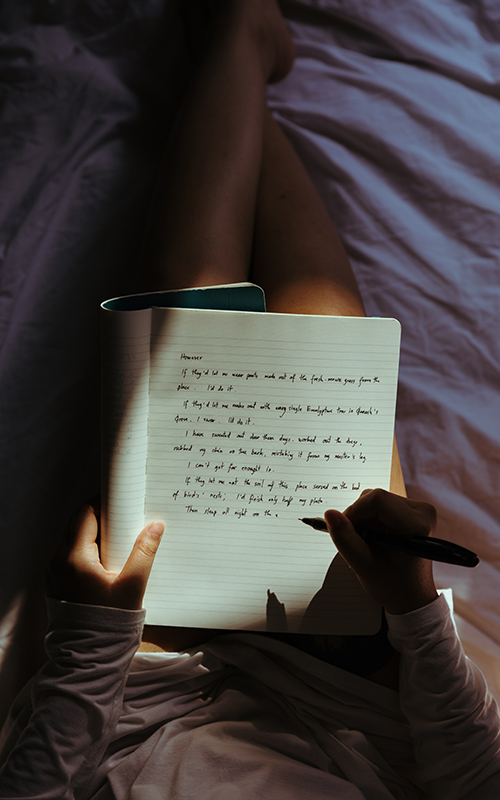 However
If they'd let me wear pants made out of the fresh-mown grass from the
place. I'd do it
If they'd let me make out with every single Eucalyptus tree in
Grove. I swear. I'd do it.
I have sweated out dear them days. worked out the days.
rubbed my chin on the bark, mistaking it from my master's leg
I can't get far enough to.
If they let me eat the soil of this place served on the bed
of birds' nests; I'd finish only half my plate.
Then sleep all night on the